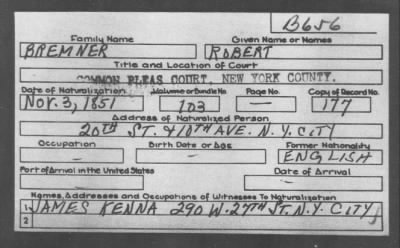 B656
Family Name Given Name or Names
BREMNER ROBERT
Title and Location of Court
COMMON PLEAS COURT, NEW YORK COUNTY.
Date of Naturalization Volume or Bundle No. Page No. Copy of Record No.
Nov. 3, 1851 103 — 177
Address of Naturalized Person
20TH ST. & 10TH AVE. N.Y. CITY
Occupation Birth Date or Age Former Nationality
— — ENGLISH
Port of Arrival in the United States Date of Arrival
— —
Names, Addresses and Occupations of Witnesses To Naturalization
1 JAMES KENNA 290 W. 27TH ST. N.Y. CITY
2